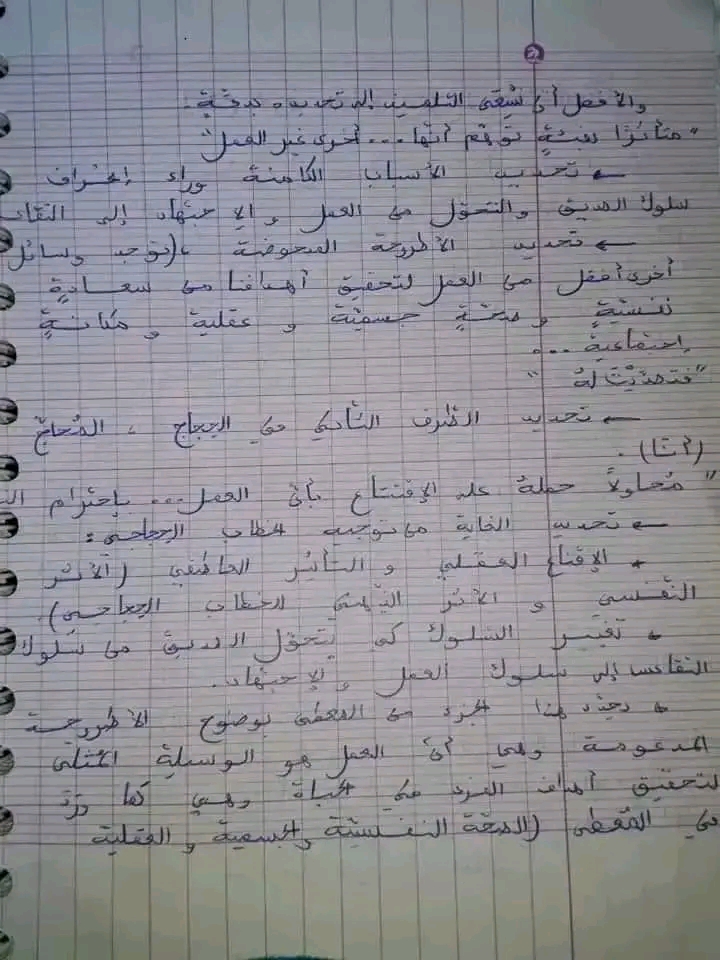 والأفضل أن التلميذ إلى تحديده بدقّةٍ.
"متأثرًا بفئةٍ توهّم أنّها... أخرى غير العمل"
← تحديد الأسباب الكامنة وراء إنحراف
سلوك الصديق والتحوّل من العمل والإجتهاد إلى التقا
← تحديد الأطروحة المدحوضة (توجد وسائل
أخرى أفضل من العمل لتحقيق أهدافنا من سعادةٍ
نفسيّةٍ و صحّةٍ جسميّة و عقلية و مكانةٍ
إجتماعية ...
"فتصدّيْتُ لهُ"
← تحديد الطّرف الثّاني في الحِجاج ، المُحاجّ
(أنا).
"مُحاولاً حمله على الإقتناع بأنّ العمل... بإحترام ال
← تحديد الغاية من توجيه الخطاب الحِجاجي:
* الإقناع العقلي و التأثير العاطفي (الأثر
النّفسي و الأثر الذّهني للخطاب الحِجاجي).
* تغيير السّلوك كي يتحوّل الصديق من سلوك
التقاعس إلى سلوك العمل والإجتهاد.
* يحدّد هذا الجزء من المعطى بوضوح الأطروحة
المدعومة وهي أنّ العمل هو الوسيلة المُثلى
لتحقيق أهداف الفرد في الحياة وهي كما
في المُعطى (الصحّة النفسيّة والجسمية والعقلية